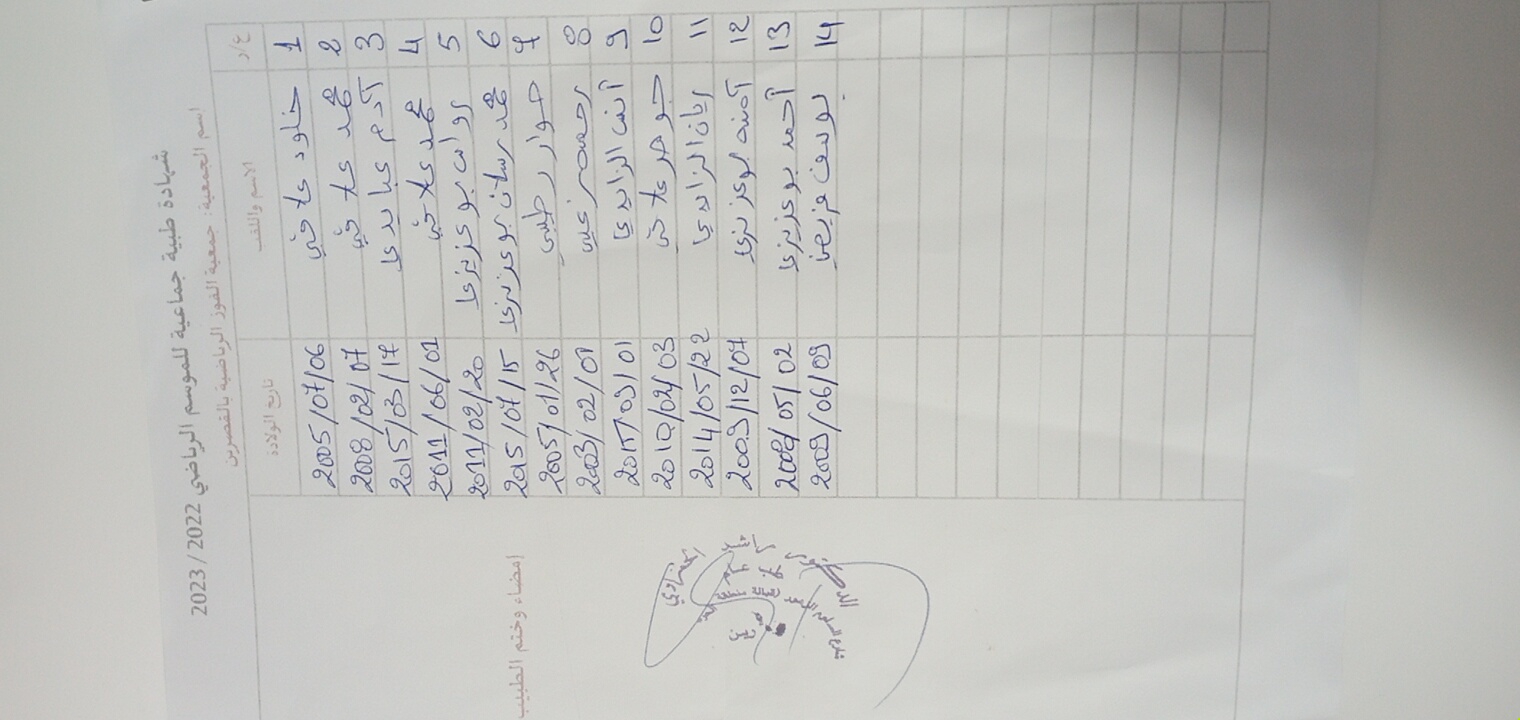 شهادة طبية جماعية للموسم الرياضي 2022 / 2023
اسم الجمعية: جمعية الفوز الرياضية بالقصرين
ع/د الاسم واللقب تاريخ الولادة
1 خلود عافي 2005/07/06
2 محمد عافي 2008/02/07
3 آدم عبايدي 2015/03/17
4 محمد عافي 2011/06/01
5 روان بوعزيزي 2011/02/20
6 محمد رسلان بوعزيزي 2015/07/15
7 حوار رطيبي 2005/01/26
8 2003/02/01
9 أنس الزايدي 2015/09/01
10 جوهر عافي 2010/02/03
11 ريان الزايدي 2014/05/22
12 آمنة بوعزيزي 2009/12/07
13 أحمد بوعزيزي 2008/05/02
14 يوسف 2009/06/09
إمضاء وختم الطبيب